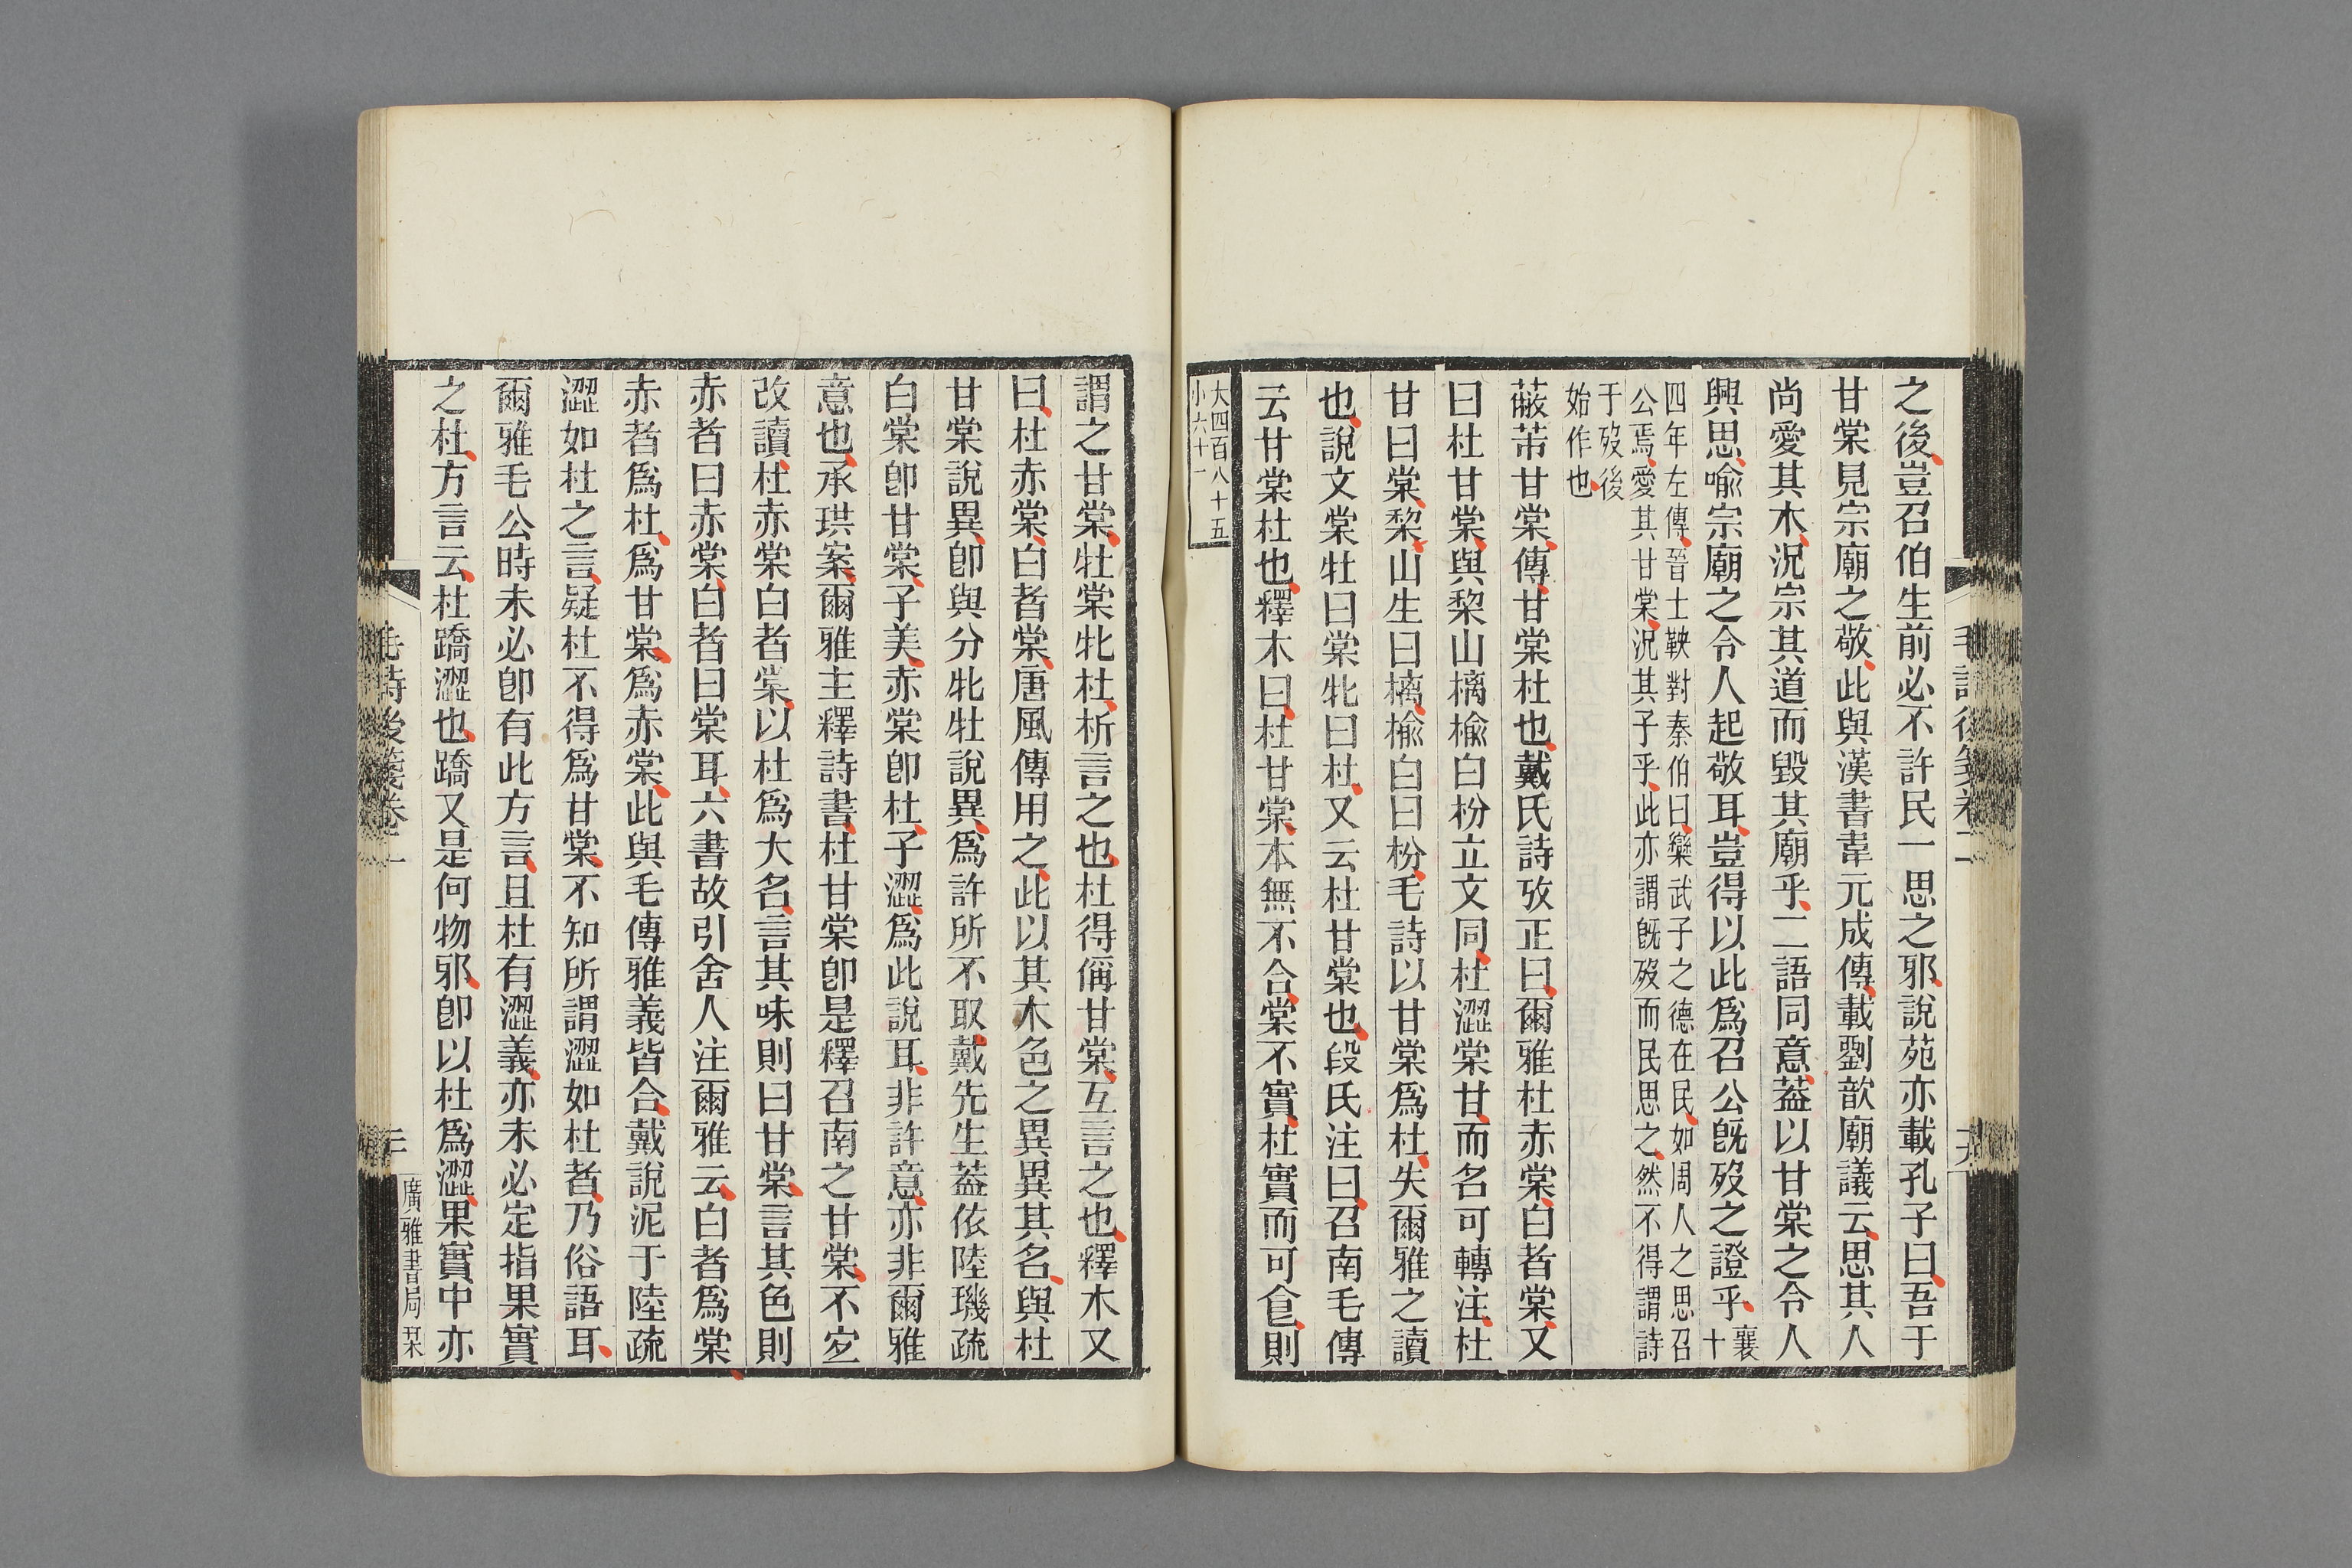 之後豈召伯生前必不許民一思之邪說苑亦載孔子曰吾于
甘棠見宗廟之敬此與漢書韋元成傳載劉歆廟議云思其人
尚愛其木況宗其道而毀其廟乎二語同意葢以甘棠之令人
興思喻宗廟之令人起敬耳豈得以此爲召公旣歿之證乎襄十
四年左傳晉士鞅對秦伯曰欒武子之德在民如周人之思召
公焉愛其甘棠況其子乎此亦謂旣歿而民思之然不得謂詩
于歿後
始作也
蔽芾甘棠傳甘棠杜也戴氏詩攷正曰爾雅杜赤棠白者棠又
曰杜甘棠與棃山樆榆白枌立文同杜澀棠甘而名可轉注杜
甘曰棠棃山生曰樆榆白曰枌毛詩以甘棠爲杜失爾雅之讀
也說文棠牡曰棠牝曰杜又云杜甘棠也段氏注曰召南毛傳
云甘棠杜也釋木曰杜甘棠本無不合棠不實杜實而可食則
大四百八十五
小六十一
毛詩後箋卷二
十九
謂之甘棠牡棠牝杜析言之也杜得偁甘棠互言之也釋木又
曰杜赤棠白者棠唐風傳用之此以其木色之異異其名與杜
甘棠說異卽與分牝牡說異爲許所不取戴先生葢依陸璣疏
白棠卽甘棠子美赤棠卽杜子澀爲此說耳非許意亦非爾雅
意也承珙案爾雅主釋詩書杜甘棠卽是釋召南之甘棠不宐
改讀杜赤棠白者棠以杜爲大名言其味則曰甘棠言其色則
赤者曰赤棠白者曰棠耳六書故引舍人注爾雅云白者爲棠
赤者爲杜爲甘棠爲赤棠此與毛傳雅義皆合戴說泥于陸疏
澀如杜之言疑杜不得爲甘棠不知所謂澀如杜者乃俗語耳
爾雅毛公時未必卽有此方言且杜有澀義亦未必定指果實
之杜方言云杜蹻澀也蹻又是何物邪卽以杜爲澀果實中亦
毛詩後箋卷二
二十
廣雅書局栞